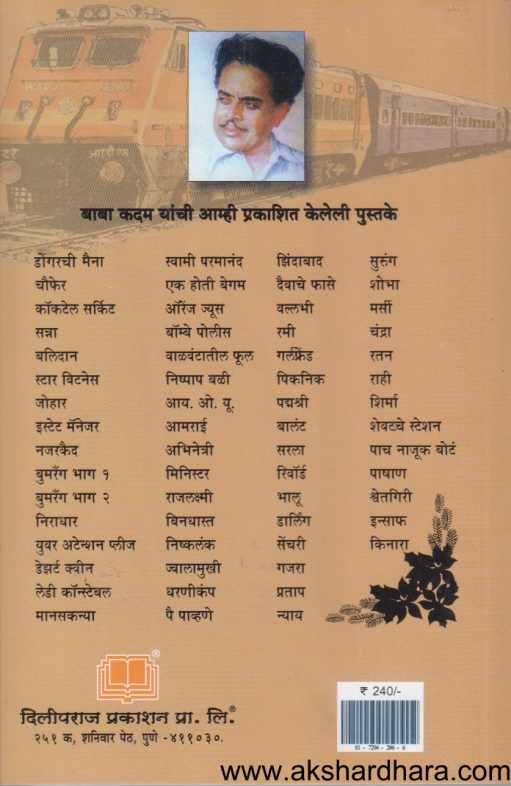 बाबा कदम यांची आम्ही प्रकाशित केलेली पुस्तके
डोंगरची मैना स्वामी परमानंद झिंदाबाद सुरुंग
चौफेर एक होती बेगम दैवाचे फासे शोभा
कॉकटेल सर्किट ऑरेंज ज्यूस वल्लभी मर्सी
सन्ना बॉम्बे पोलीस रमी चंद्रा
बलिदान वाळवंटातील फूल गर्लफ्रेंड रतन
स्टार विटनेस निष्पाप बळी पिकनिक राही
जोहार आय. ओ. यू. पद्मश्री शिर्मा
इस्टेट मॅनेजर आमराई बालंट शेवटचे स्टेशन
नजरकैद अभिनेत्री सरला पाच नाजूक बोटं
बुमरँग भाग १ मिनिस्टर रिवॉर्ड पाषाण
बुमरँग भाग २ राजलक्ष्मी भालू श्वेतगिरी
निराधार बिनधास्त डार्लिंग इन्साफ
युवर अटेन्शन प्लीज निष्कलंक सेंचरी किनारा
डेझर्ट क्वीन ज्वालामुखी गजरा
लेडी कॉन्स्टेबल धरणीकंप प्रताप
मानसकन्या पै पाव्हणे न्याय
दिलीपराज प्रकाशन प्रा. लि.®
२५१ क, शनिवार पेठ, पुणे -४११०३०.
₹ 240/-
www.akshardhara.com